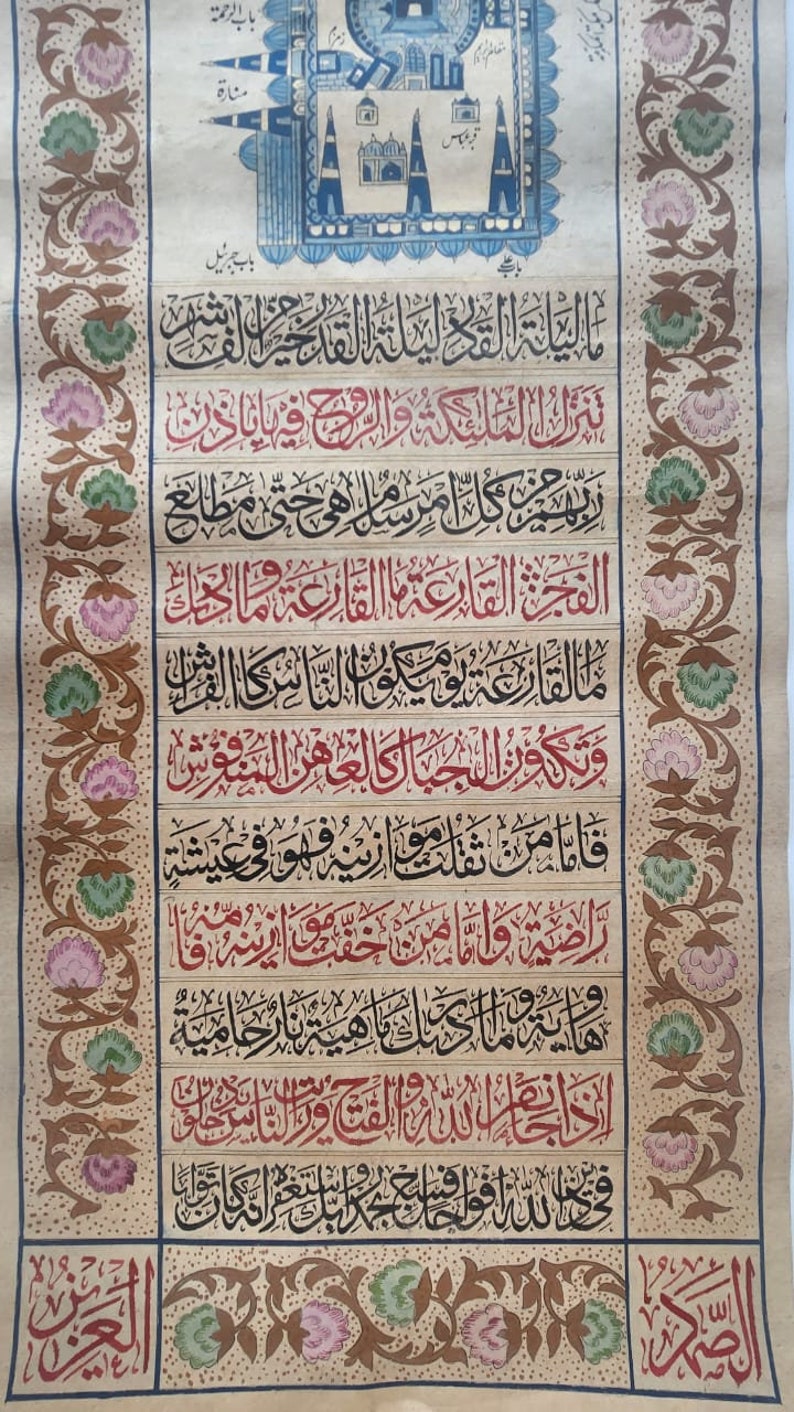 باب الرحمة
زمزم
منارة
قبہ عباس
باب جبرئیل
باب علی
ما ليلة القدر ليلة القدر خير من الف شهر
تنزل الملئكة والروح فيها باذن
ربهم من كل امر سلام هى حتى مطلع
الفجر القارعة ما القارعة وما ادرىك
ما القارعة يوم يكون الناس كا الفراش
وتكون الجبال كا لعهن المنفوش
فاما من ثقلت موازينه فهو فى عيشة
راضية واما من خفت موازينه فامه
هاوية وما ادرىك ما هية نار حامية
اذا جا نصر الله والفتح ورايت الناس يدخلون
فى دين الله افواجا فسبح بحمد ربك واستغفره انه كان توابا
الصمد
العزيز